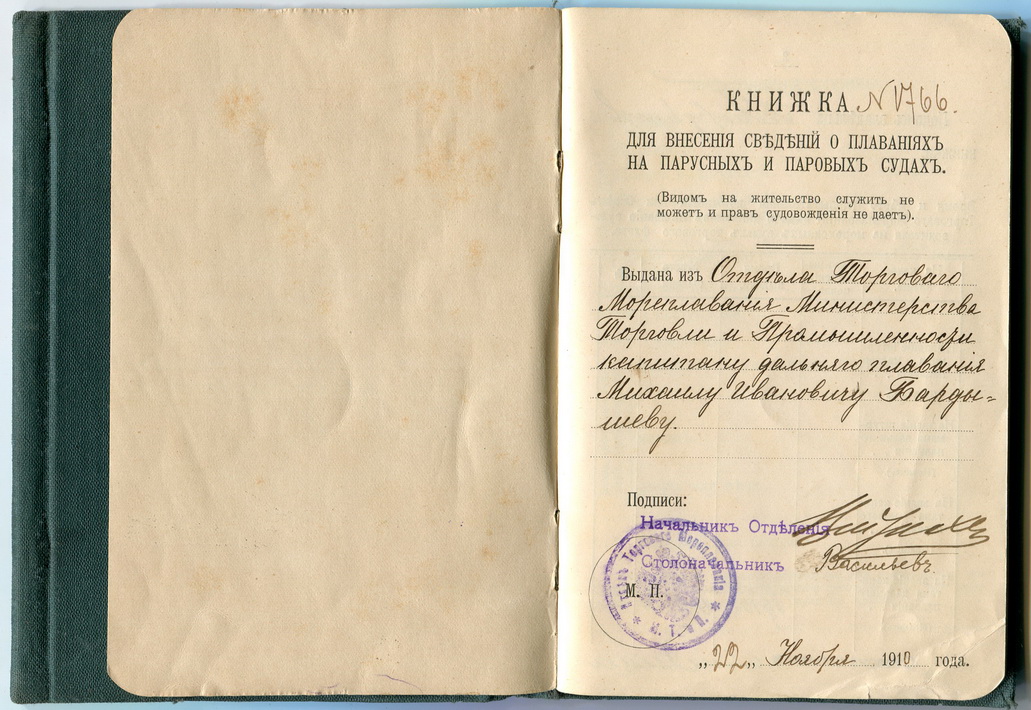 КНИЖКА № 1766.
ДЛЯ ВНЕСЕНІЯ СВѢДѢНІЙ О ПЛАВАНІЯХЪ
НА ПАРУСНЫХЪ И ПАРОВЫХЪ СУДАХЪ.
(Видомъ на жительство служить не
можетъ и правъ судовожденія не даетъ).
Выдана изъ Отдѣла Торговаго
Мореплаванія Министерства
Торговли и Промышленности
капитану дальняго плаванія
Михаилу Ивановичу Барды=
шеву.
Подписи:
Начальникъ Отдѣленія
Столоначальникъ Васильевъ.
М. П.
Отдѣлъ Торговаго Мореплаванія * М. Т. и П. *
„22„ Ноября 1910 года.